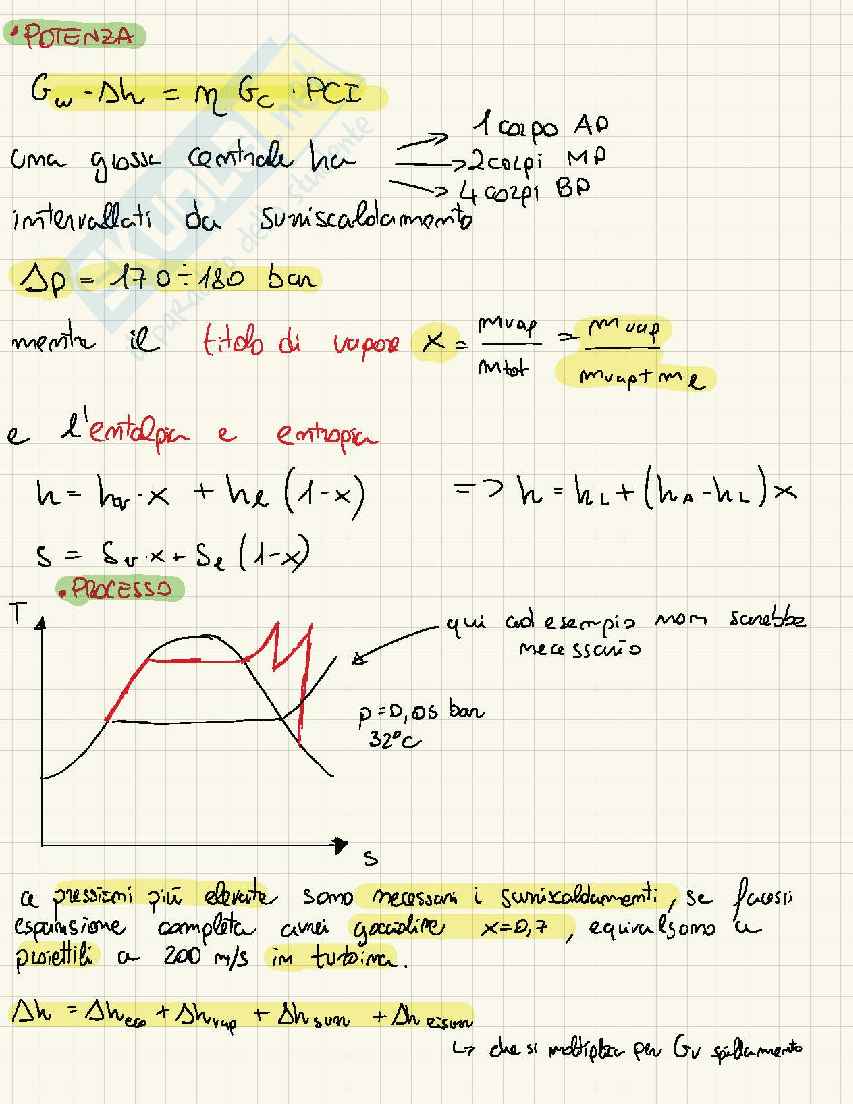 • POTENZA
G_w · Δh = η G_c · PCI
una grossa centrale ha → 1 corpo AP
→ 2 corpi MP
→ 4 corpi BP
intervallati da surriscaldamento
Δp = 170 ÷ 180 bar
mentre il titolo di vapore x = m_vap / m_tot = m_vap / m_vap + m_l
e l'entalpia e entropia
h = h_v · x + h_l (1-x) => h = h_L + (h_A - h_L) x
s = s_v · x + s_l (1-x)
• PROCESSO
T
qui ad esempio non sarebbe
necessario
p = 0,05 bar
32°C
s
a pressioni più elevate sono necessari i surriscaldamenti, se facessi
espansione completa avrei goccioline x=0,7, equivalgono a
proiettili a 200 m/s in turbina.
Δh = Δh_eco + Δh_vap + Δh_surr + Δh_risurr
↳ che si moltiplica per G_v spillamento